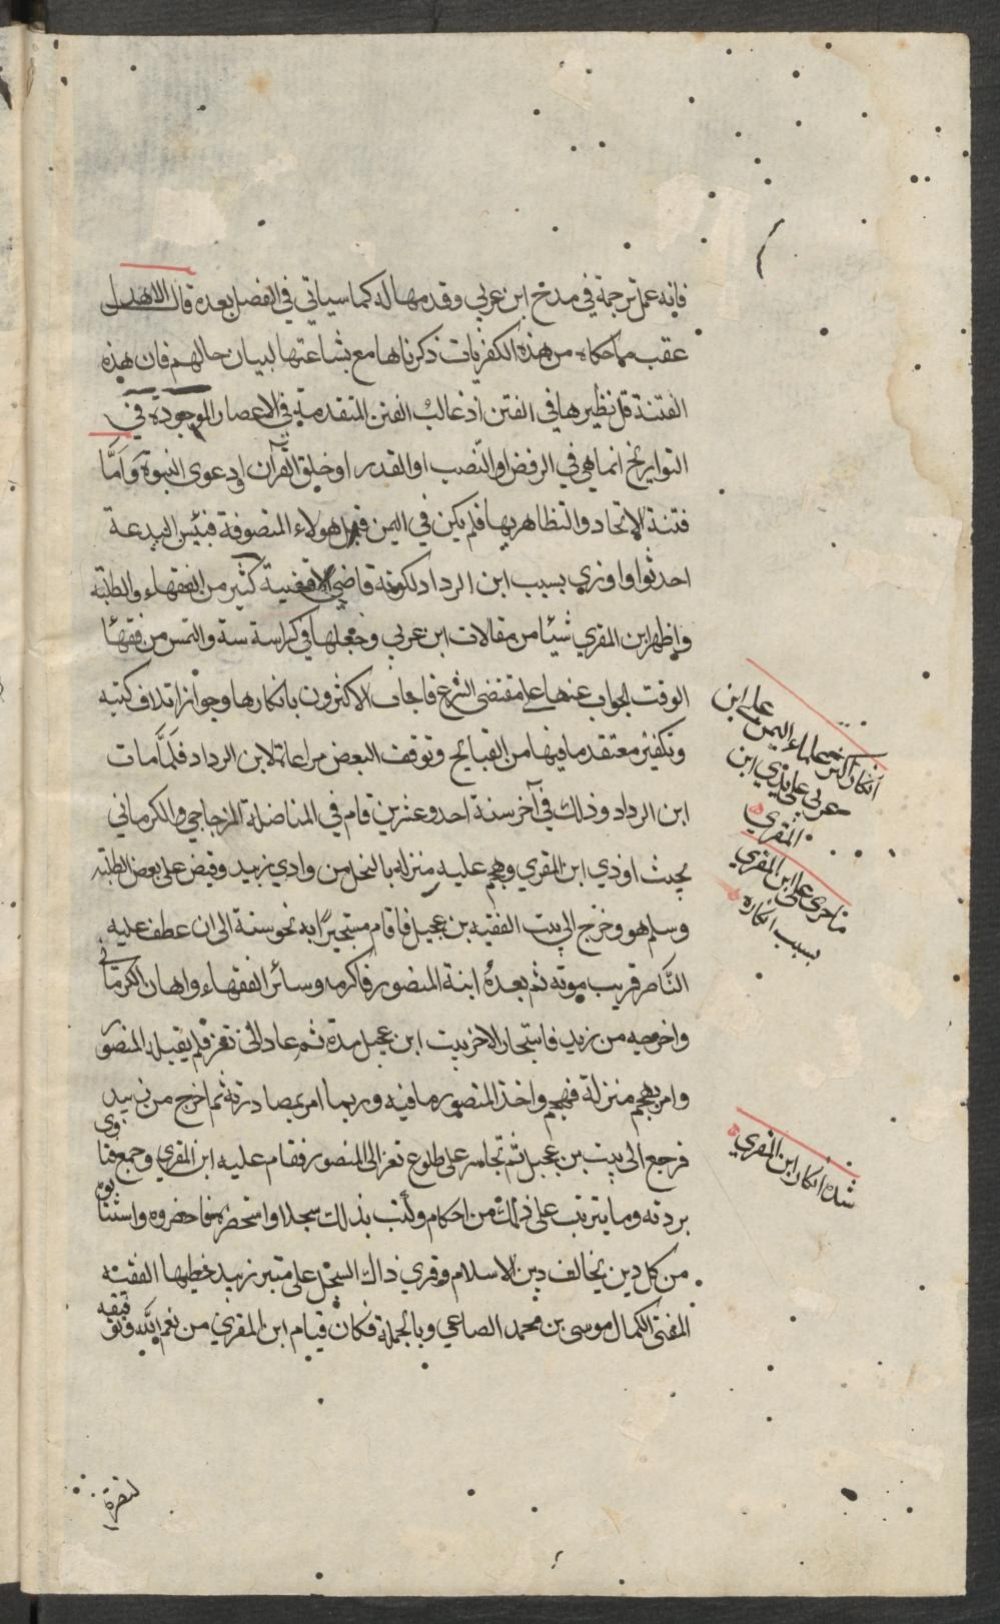 فانه عمل ترجمة في مدح ابن عربي وقدمها له كما سياتي في الفصل بعده قال الاهدل
عقب ما حكاه من هذه الكفريات ذكرناها مع بشاعتها لبيان حالهم فان هذه
الفتنة قل نظيرها في الفتن اذ غالب الفتن المتقدمة في الاعصار الموجودة في
التواريخ انما هي في الرفض او النصب او القدر او خلق القرآن او دعوى النبوة وامَّا
فتنة الاتحاد والتظاهر بها فلم يكن في اليمن قبل هولاء المتصوفة فبئس البدعة
احدثوا واوذي بسبب ابن الرداد لكونه قاضي الاقضية كثير من الفقهاء والطلبة
واظهر ابن المقري شيئا من مقالات ابن عربي وجعلها في كراسة ستة والتمس من فقهئا
الوقت الجواب عنها على مقتضى الشرع فاجاب الاكثرون بانكارها وجواز اتلاف كتبه
وتكفير معتقد ما فيها من القبائح وتوقف البعض مراعاة لابن الرداد فلمَّا مات
ابن الرداد وذلك في آخر سنة احد وعشرين قام في المناضلة المزجاجي والكرماني
بحيث اوذي ابن المقري وهجم عليه منزله بالنخل من وادي زبيد وقبض على بعض الطلبة
وسلم هو وخرج الى بيت الفقيه بن عجيل فاقام مستجيرًا به نحو سنة الى ان عطف عليه
النَّاصر قريب موته ثم بعده ابنه المنصور فاكرمه وسائر الفقهاء واهان الكرماني
واخرجه من زبيد فاستجار الاخر ببيت ابن عجيل مدة ثم عاد الى تعز فلم يقبله المنصور
وامر بهجم منزله فهجم واخذ المنصور ما فيه وربما امر بمصادرته ثم اخرج من زبيد
فرجع الى بيت بن عجيل ثم تجاسر على طلوع تعز الى المنصور فقام عليه ابن المقري وجمع فتاوى
بردته وما يترتب على ذلك من احكام وكتب بذلك سجلا واستحضره فاحضروه واستتابوه
من كل دين يخالف دين الاسلام وقري ذاك السجل على منبر زبيد خطيبها الفقيه
المفتي الكمال موسى بن محمد الضاعي وبالجملة فكان قيام ابن المقري من نعم الله وتوفيقه
لنصرة
انكار اكثر علماء اليمن على ابن
عربي على يدي ابن
المقري
ما جرى على ابن المقري
بسبب انكاره
شدة انكار ابن المقري